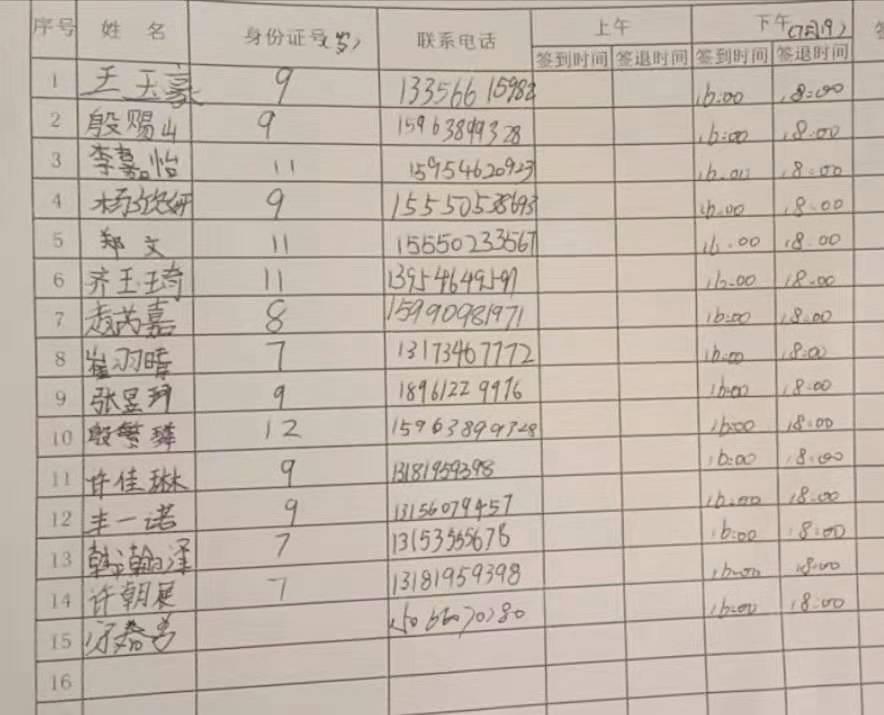 序号 姓 名 身份证号(岁) 联系电话 上午 下午(7月19)
签到时间 签退时间 签到时间 签退时间
1 王玉豪 9 13356615982 16:00 18:00
2 殷赐山 9 15963899328 16:00 18:00
3 李嘉怡 11 15954620923 16:00 18:00
4 杨欣妍 9 15550538693 16:00 18:00
5 郑文 11 15550233567 16:00 18:00
6 齐王琦 11 13954649597 16:00 18:00
7 赵芮嘉 8 15990981971 16:00 18:00
8 崔羽晴 7 13173467772 16:00 18:00
9 张昱珂 9 18961229976 16:00 18:00
10 殷繁 12 15963899328 16:00 18:00
11 许佳琳 9 13181959398 16:00 18:00
12 丰一诺 9 13156079457 16:00 18:00
13 韩瀚泽 7 13153555678 16:00 18:00
14 许朝展 7 13181959398 16:00 18:00
15 16:00 18:00
16